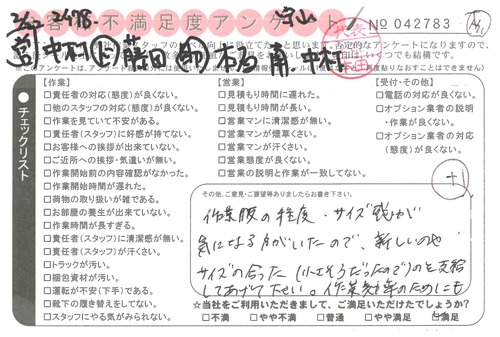 2478
お客様不満足度アンケート
守山
No 042783
営 中村 上 藤田 助
中村
チェックリスト
【作業】
□責任者の対応(態度)が良くない。
□他のスタッフの対応(態度)が良くない。
□作業を見ていて不安がある。
□責任者(スタッフ)に好感が持てない。
□お客様への挨拶が出来ていない。
□ご近所への挨拶・気遣いが無い。
□作業開始前の内容確認がなかった。
□作業開始時間が遅れた。
□荷物の取り扱いが雑である。
□お部屋の養生が出来ていない。
□作業時間が長すぎる。
□責任者(スタッフ)に清潔感が無い。
□責任者(スタッフ)が汗くさい。
□トラックが汚い。
□梱包資材が汚い。
□運転が不安(下手)である。
□靴下の履き替えをしてない。
□スタッフにやる気がみられない。
【営業】
□見積もり時間に遅れた。
□見積もり時間が長い。
□営業マンに清潔感が無い。
□営業マンが煙草くさい。
□営業マンが汗くさい。
□営業態度が良くない。
□営業の説明と作業が一致してない。
【受付・その他】
□電話の対応が良くない。
□オプション業者の説明
・作業が良くない。
□オプション業者の対応
(態度)が良くない。
その他、ご意見・ご要望等ありましたらお書き下さい。
作業服の程度・サイズ感が
気になる方がいたので、新しいのや
サイズの合った(小さそうだったので)のを支給
してあげて下さい。作業効率のためにも
☆当社をご利用いただきまして、ご満足いただけたでしょうか?
□不満 □やや不満 □普通 □やや満足 □満足